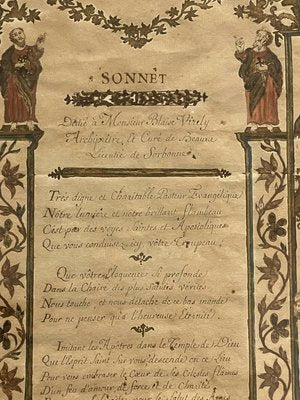 SONNET
Dédié à Monsieur Blaise Virely
Archiprêtre, et Curé de Beaune
Licentié de Sorbonne
Très digne et Charitable Pasteur Evangélique
Nôtre lumière et nôtre brillant flambeau
C'est par des voyes saintes et Apostoliques
Que vous conduisez icy vôtre Troupeau!
Que vôtre Eloquence est profonde
Dans la Chaire des plus saintes vérités
Nous touche et nous détache de ce bas monde
Pour ne penser qu'à l'heureuse éternité.
Imitant les Apôtres dans le Temple de Dieu
Que l'Esprit Saint sur vous descende en ce Lieu
Pour vous embraser le Cœur de ses Célestes flâmes
D'un feu d'amour de force et de Charité
le salut des Ames